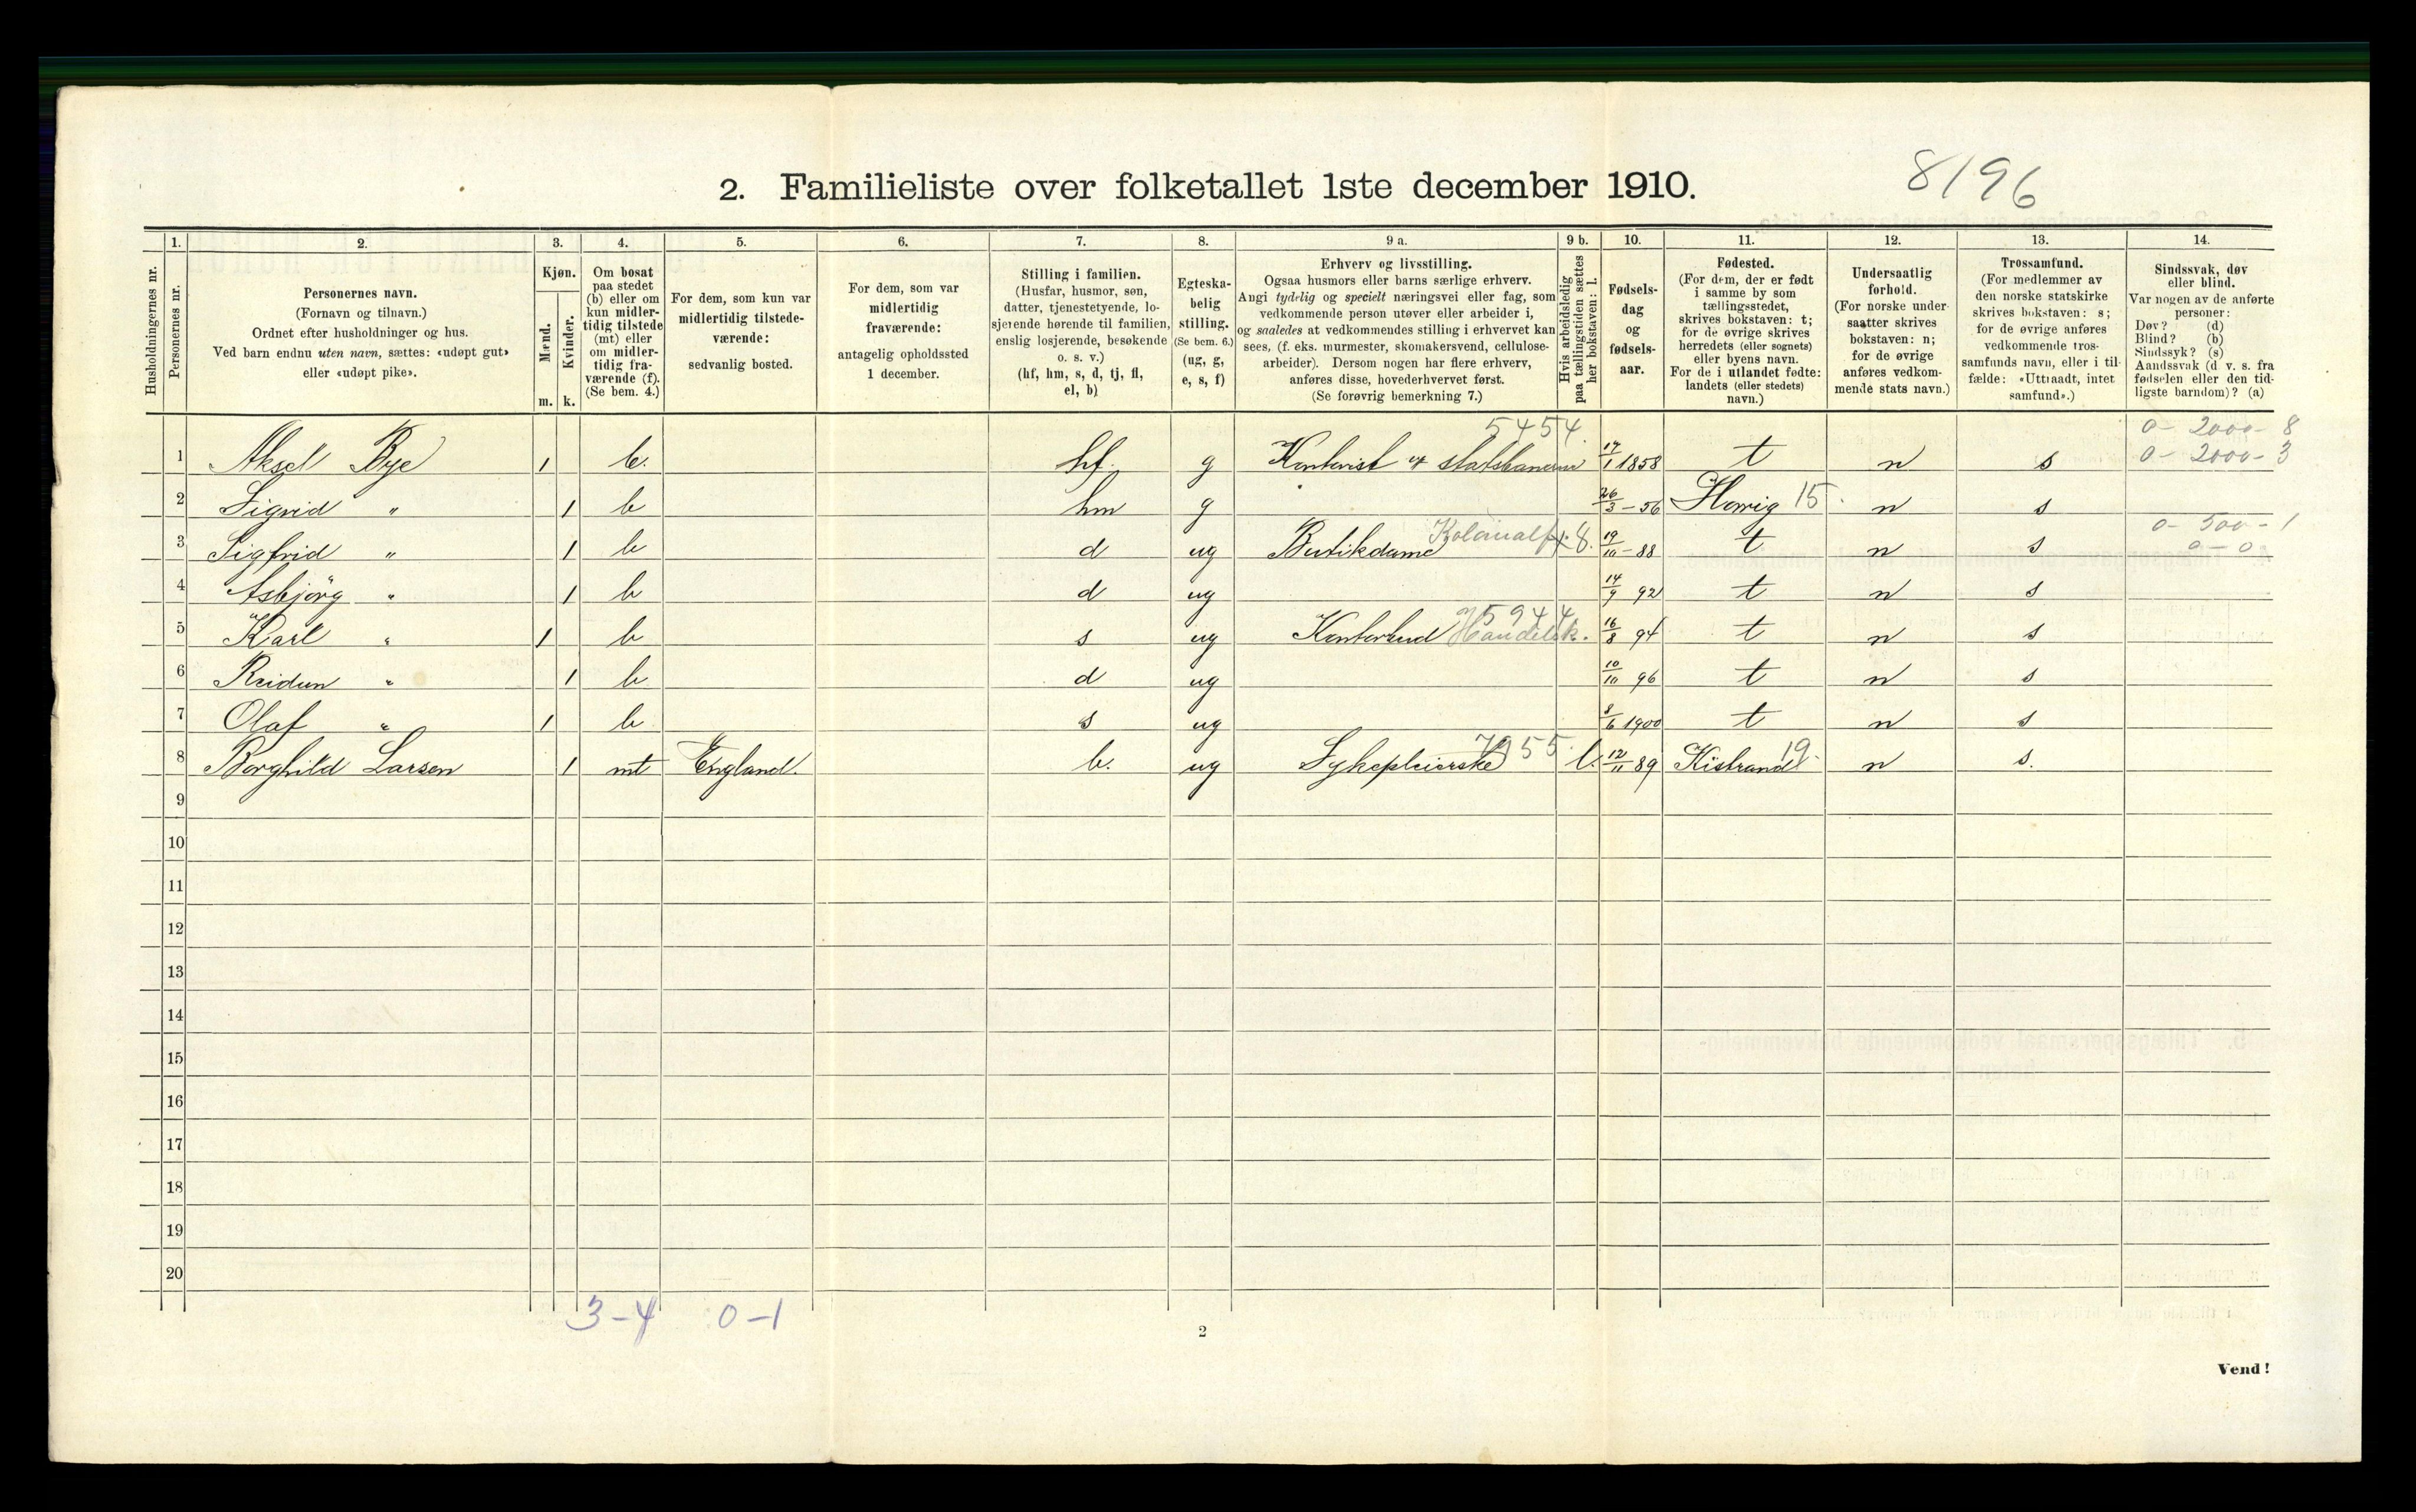 8196
2. Familieliste over folketallet 1ste december 1910.
Husholdningernes nr.
1. Personernes nr.
2. Personernes navn.
(Fornavn og tilnavn.)
Ordnet efter husholdninger og hus.
Ved barn endnu uten navn, sættes: «udøpt gut»
eller «udøpt pike».
3. Kjøn.
Mænd. m.
Kvinder. k.
4. Om bosat
paa stedet
(b) eller om
kun midler-
tidig tilstede
(mt) eller
om midler-
tidig fra-
værende (f).
(Se bem. 4.)
5. For dem, som kun var
midlertidig tilstede-
værende:
sedvanlig bosted.
6. For dem, som var
midlertidig
fraværende:
antagelig opholdssted
1 december.
7. Stilling i familien.
(Husfar, husmor, søn,
datter, tjenestetyende, lo-
sjerende hørende til familien,
enslig losjerende, besøkende
o. s. v.)
(hf, hm, s, d, tj, fl,
el, b)
8. Egteska-
belig
stilling.
(Se bem. 6.)
(ug, g,
e, s, f)
9 a. Erhverv og livsstilling.
Ogsaa husmors eller barns særlige erhverv.
Angi tydelig og specielt næringsvei eller fag, som
vedkommende person utøver eller arbeider i,
og saaledes at vedkommendes stilling i erhvervet kan
sees, (f. eks. murmester, skomakersvend, cellulose-
arbeider). Dersom nogen har flere erhverv,
anføres disse, hovederhvervet først.
(Se forøvrig bemerkning 7.)
9 b. Hvis arbeidsledig
paa tællingstiden sættes
her bokstaven: l.
10. Fødsels-
dag
og
fødsels-
aar.
11. Fødested.
(For dem, der er født
i samme by som
tællingsstedet,
skrives bokstaven: t;
for de øvrige skrives
herredets (eller sognets)
eller byens navn.
For de i utlandet fødte:
landets (eller stedets)
navn.)
12. Undersaatlig
forhold.
(For norske under-
saatter skrives
bokstaven: n;
for de øvrige
anføres vedkom-
mende stats navn.)
13. Trossamfund.
(For medlemmer av
den norske statskirke
skrives bokstaven: s;
for de øvrige anføres
vedkommende tros-
samfunds navn, eller i til-
fælde: «Uttraadt, intet
samfund».)
14. Sindssvak, døv
eller blind.
Var nogen av de anførte
personer:
Døv? (d)
Blind? (b)
Sindssyk? (s)
Aandssvak (d. v. s. fra
fødselen eller den tid-
ligste barndom)? (a)
5454. 0 - 2000 - 8
1 Aksel Bye 1 b. hf. g Kontorist v statsbanerne 17/1 1858 t n s 0 - 2000 - 3
2 Sigrid " 1 b hm g 26/3 - 56 15. n s
3 Sigfrid " 1 b d ug Butikdame Kolonialf. 8. 19/10 - 88 t n s 0 - 500 - 1
0 - 0
4 Asbjörg " 1 b d ug 14/9 92 t n s
5944
5 Karl " 1 b s ug Kontorbud Handelsk. 16/8 94 t n s
6 Reidun " 1 b d ug 10/10 96 t n s
7 Olaf " 1 b s ug 8/6 1900 t n s
8 Borghild Larsen 1 mt England. b. ug Sykepleierske 7955. l. 12/11 89 Kistrand 19. n s.
9
10
11
12
13
14
15
16
17
18
19
20
3 - 4 0 - 1
2
Vend!